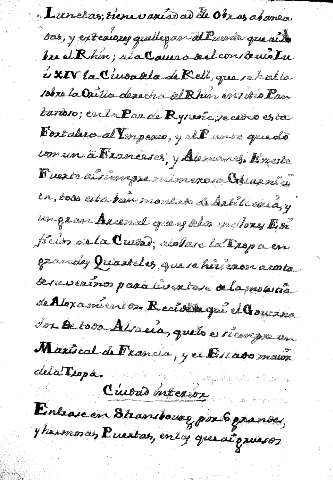 Lunetas; tiene variedad de Obras abanza
das, y exteriores que llegan al Puente que ai so
bre el Rhin; si a Causa del con Lu
is XIV la Ciudadela de Keli, que se halla
sobre la Orilla derecha del Rhin en sitio Pan
tanoso; en la Paz de Rysvic, se cedio esta
Fortaleza al Ymperio, y el Puente quedó
comun a Franceses, y Alemanes. En esta
Fuerte ai siempre numerosa Guarnici
on, toda esta bien montada de Artilleria, y
un gran Arsenal que es de los mejores Edi
ficios de la Ciudad; alojase la Tropa en
grandes Quarteles, que se hicieron a costa
de sus vecinos para librarse de la molestia
de Aloxamientos. Reside aqui el Governa
dor de toda Alsacia, que lo es siempre un
Mariscal de Francia, y el Estado maior
de la Tropa.
Ciudad interior
Entrase en Strasbourg, por 6 grandes,
y hermosas Puertas, en las que ai gruesos